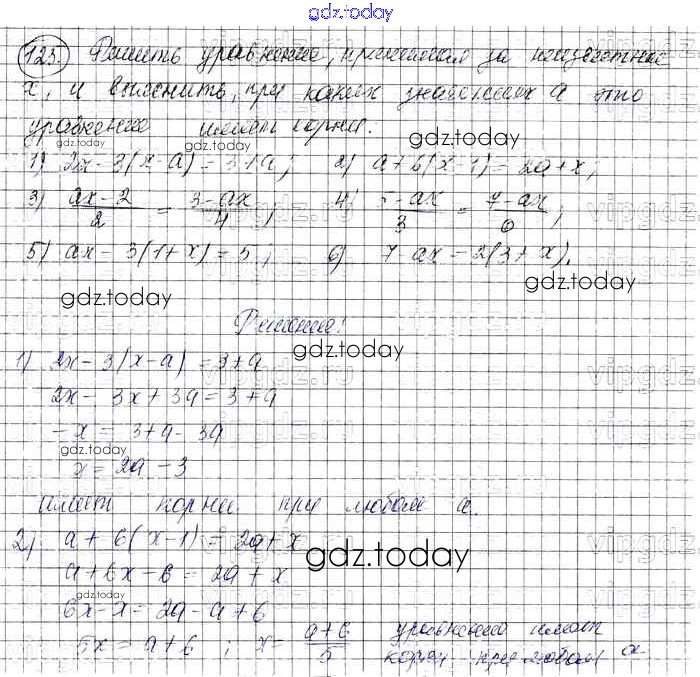 gdz.today
123. Решить уравнение, принимая за неизвестное
x, и выяснить, при каких значениях a это
уравнение имеет корни.
gdz.today
1) 2x - 3(x-a) = 3+a; 2) a+6(x-1) = 2a+x;
3) ax-2/2 = 3-ax/4; 4) 5-ax/3 = 7-ax/6;
vipgdz.ru
5) ax - 3(1+x) = 5; 6) 7-ax = 2(3+x).
gdz.today
gdz.today
Решение:
vipgdz.ru
gdz.today
1) 2x-3(x-a) = 3+a
vipgdz.ru
2x - 3x + 3a = 3+a
-x = 3+a-3a
gdz.today
x = 2a - 3
имеет корни при любом a.
2) a + 6(x-1) = 2a+x
vipgdz.ru
gdz.today
a+6x-6 = 2a+x
gdz.today
6x-x = 2a-a+6
5x = a+6; x = a+6/5 уравнение имеет
корни при любом a